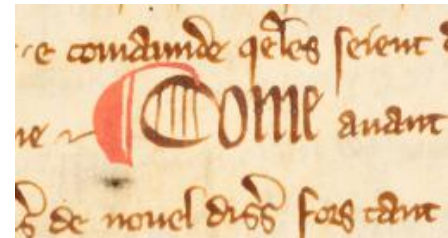 e comaunde qeles seient
ne Come auant
de nouel diss fors tant